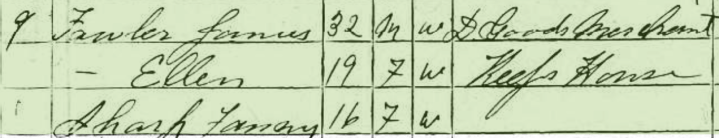 9 Fawler James 32 M W D Goods Merchant
— Ellen 19 F W Keeps House
1 Sharp Fanny 16 F W